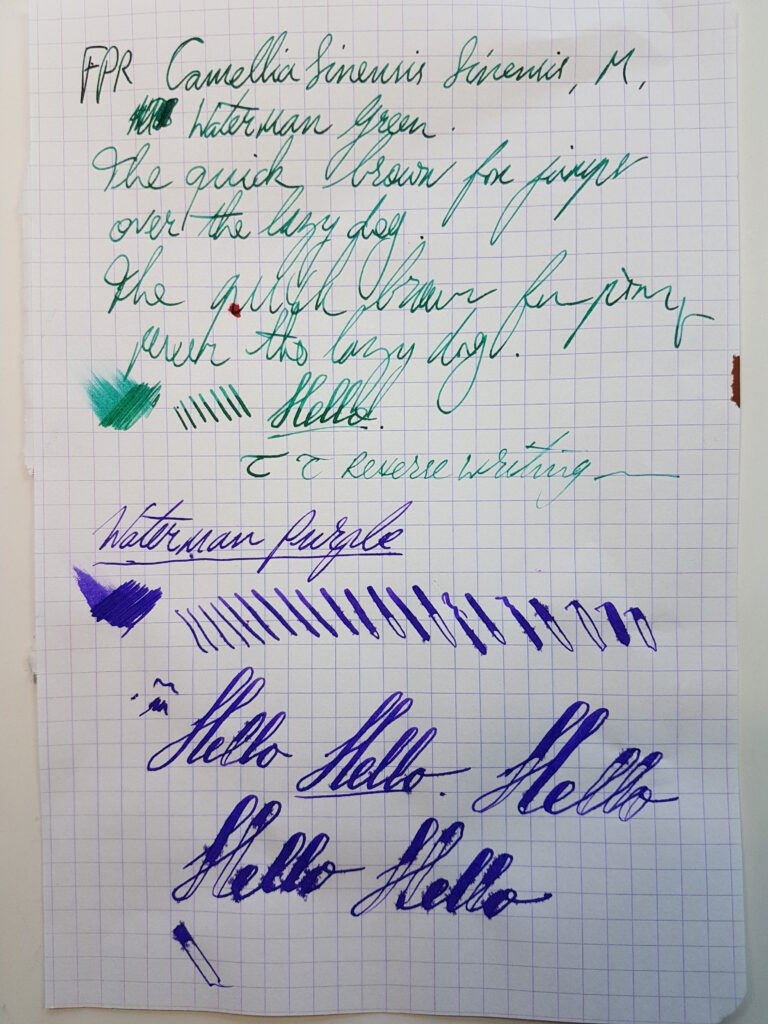 FPR Camellia Sinensis Sinensis, M,
Waterman Green.
The quick brown fox jumps
over the lazy dog.
The quick brown fox
the lazy dog.
Hello.
τ τ Reverse writing
Waterman Purple
Hello Hello. Hello
Hello Hello